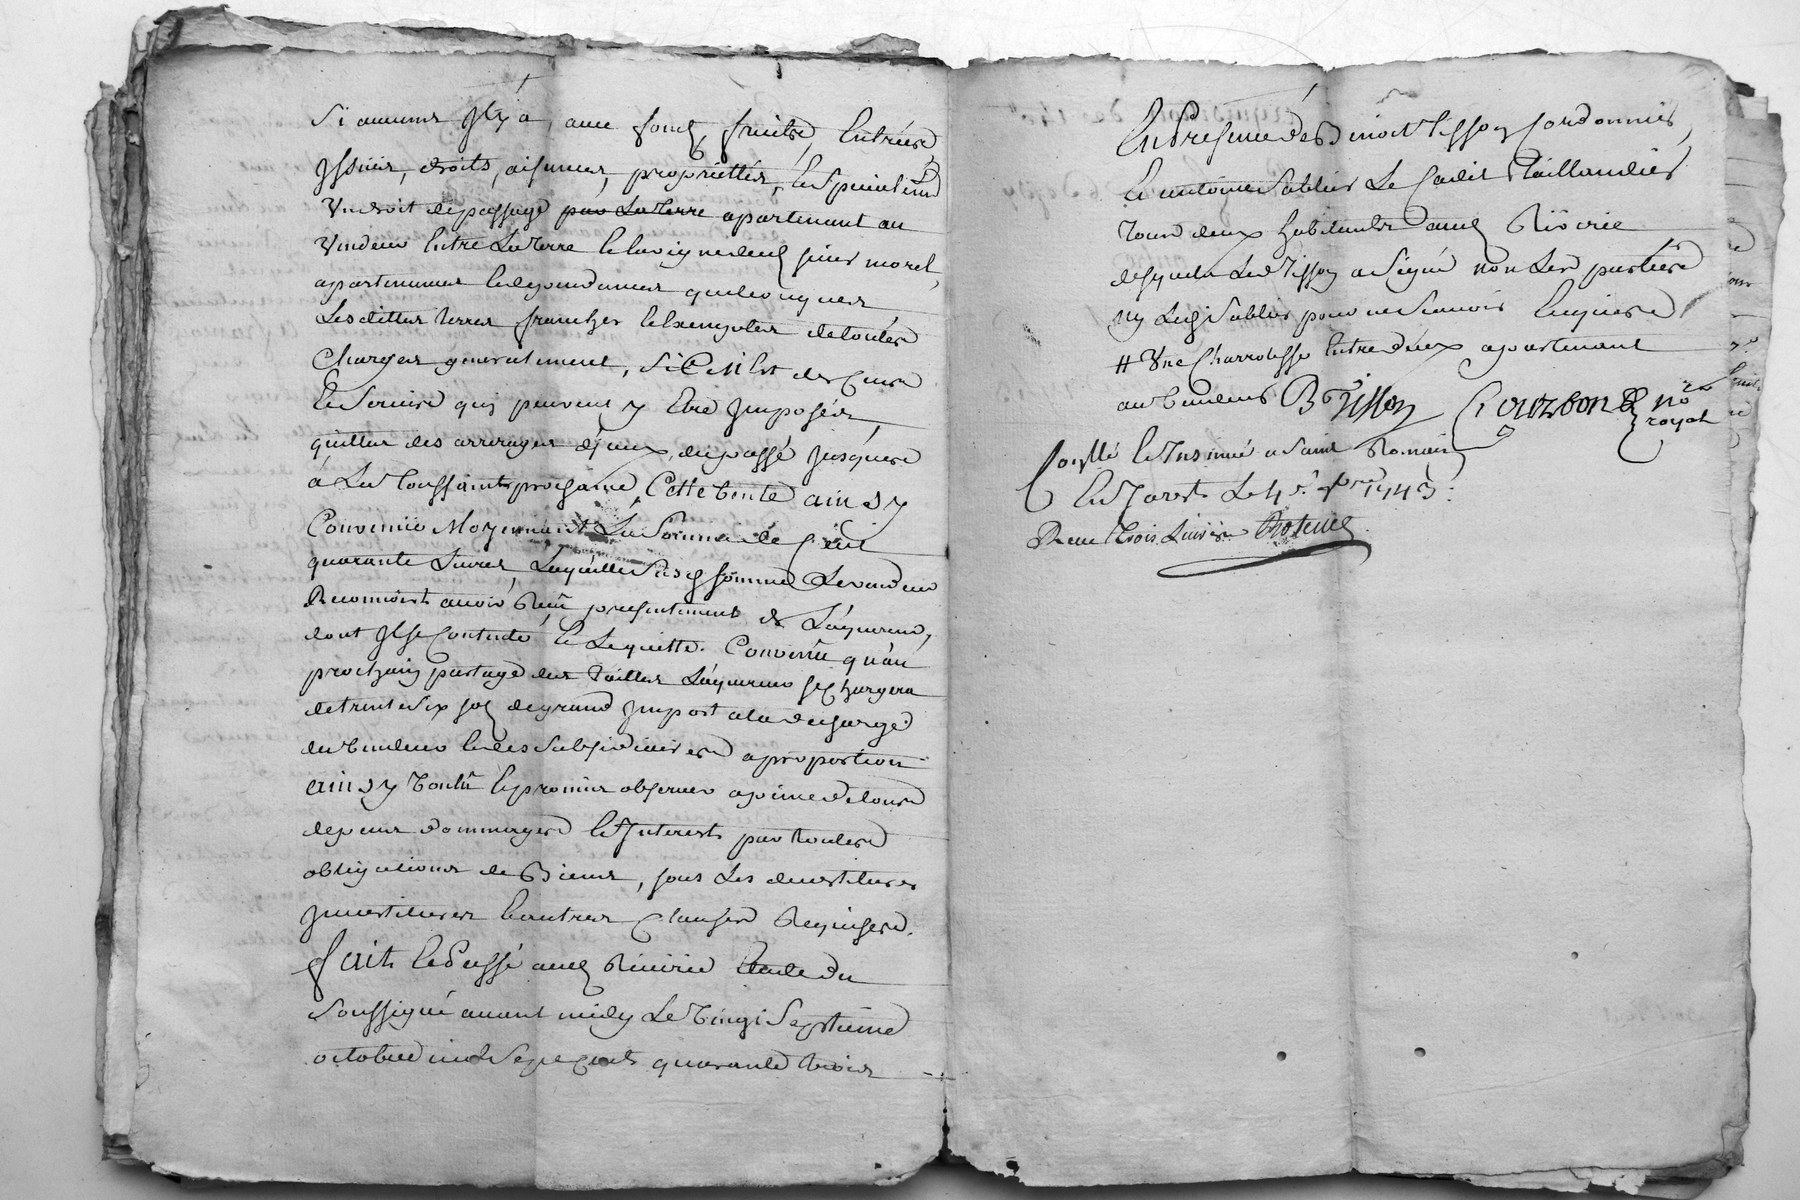 Si aucunes Il y a, avec fonds, fruits, Entrées,
Issües, droits, aisances, proprietés, Et Specialemt
Un droit de passage par La terre apartenant au
Vendeur Entre La terre Et la vigne dud sieur morel,
apartenances Et dependances quelconques
Lesdittes terres franches Et Exemptes de toutes
Charges generalement, Si Ce n'Est des Cens
Et Servis qui peuvent y Etre Imposés,
quittes des arrerages d'jceux, du passé Jusques
a La toussaints prochaine, Cette vente ainsy
Convenüe Moyennant La Somme de Cent
quarante Livres, Laquelle Susd somme Le vendeur
Reconnoist avoir Reçû presentement de L'aquereur,
dont Il se Contente Et Le quitte. Convenu qu'au
prochain partage des tailles L'aquereur se Chargera
de trente Six sols de grand Import a la decharge
du vendeur Et des Subsidiaires a proportion
ainsy voulû Et promis observer a peine de tous
depens dommages Et Interests par toutes
obligations de Biens, sous Les devestitures
Investitures Et autres Clauses Requises.
fait Et Passé aud Rivirie Etude du
Soussigné avant midy Le vingt Septieme
octobre mil Sept Cents quarante trois
En Presence de Benoit tisson Cordonnier,
Et antoine Sablier Le Cadet taillandier
tous deux habitants aud Rivirie
desquels Led tisson a Signé non Les parties
ny Led Sablier pour ne Scavoir Enquis
# Une Charrotisse Entre deux apartenant
au vendeur B tisson Crouzbon no.re
royal
Scellé Et Insinué a Saint Romain
En Jarest Le 4e 9bre 1743.
Reçu trois Livres